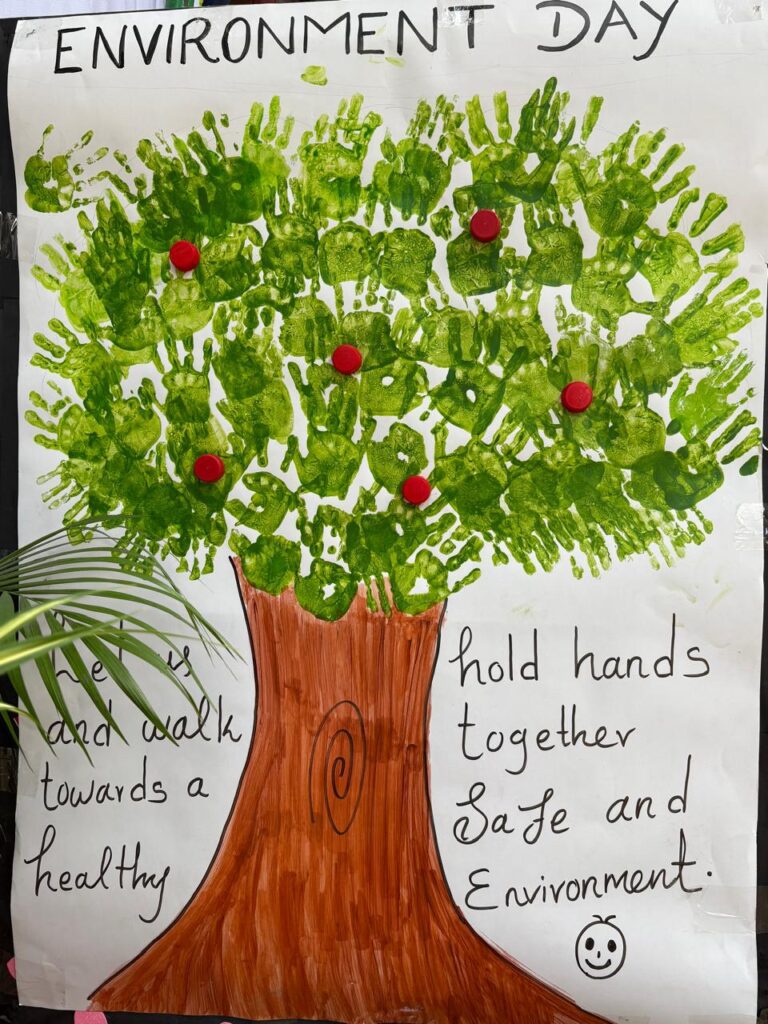 ENVIRONMENT DAY
Let us hold hands
and walk together
towards a Safe and
healthy Environment.